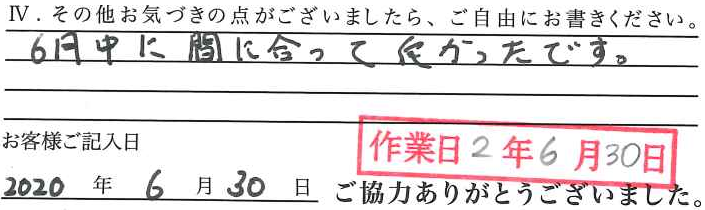 Ⅳ.その他お気づきの点がございましたら、ご自由にお書きください。
6月中に間に合って良かったです。
お客様ご記入日
作業日2年6月30日
2020年6月30日
ご協力ありがとうございました。